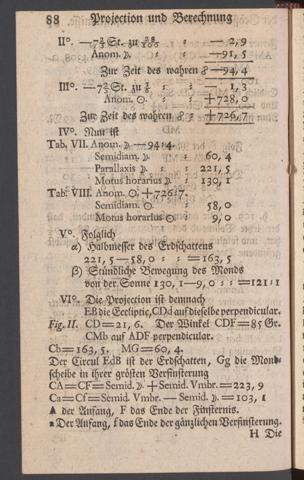 88 Projection und Berechnung
IIº. —7⅔ St. zu 28/100 : : —2,9
Anom. ☽. — —91,5
Zur Zeit des wahren ☍ —94,4
IIIº. —7⅔ St. zu ⅙ : : — 1,3
Anom. ☉. : : +728,0
Zur Zeit des wahren ☍ : +726,7
IVº. Nun ist
Tab. VII. Anom. ☽ —94:4.
Semidiam. ☽. : : 60,4
Parallaxis ☽. : : 221,5
Motus horarius ☽. : 130,1
Tab. VIII. Anom. ☉ +726:7.
Semidiam. ☉. : : 58,0
Motus horarius ☉ : 9,0
Vº. Folglich
α) Halbmesser des Erdschattens
221,5—58,0 : : =163,5
β) Stündliche Bewegung des Monds
von der Sonne 130,1—9,0 : : =121:1
VIº. Die Projection ist demnach
EB die Ecliptic, CDd auf dieselbe perpendicular.
Fig. II. CD=21,6. Der Winkel CDF=85 Gr.
CMb auf ADF perpendicular.
Cb=163,5. MG=60,4.
Der Circul EdB ist der Erdschatten, Gg die Mond-
scheibe in ihrer grösten Verfinsterung
CA=CF=Semid. ☽. +Semid. Vmbr.=223,9
Ca=Cf=Semid. Vmbr. —Semid. ☽. =103,1
A der Anfang, F das Ende der Finsternis.
a Der Anfang, f das Ende der gänzlichen Verfinsterung.
H Die